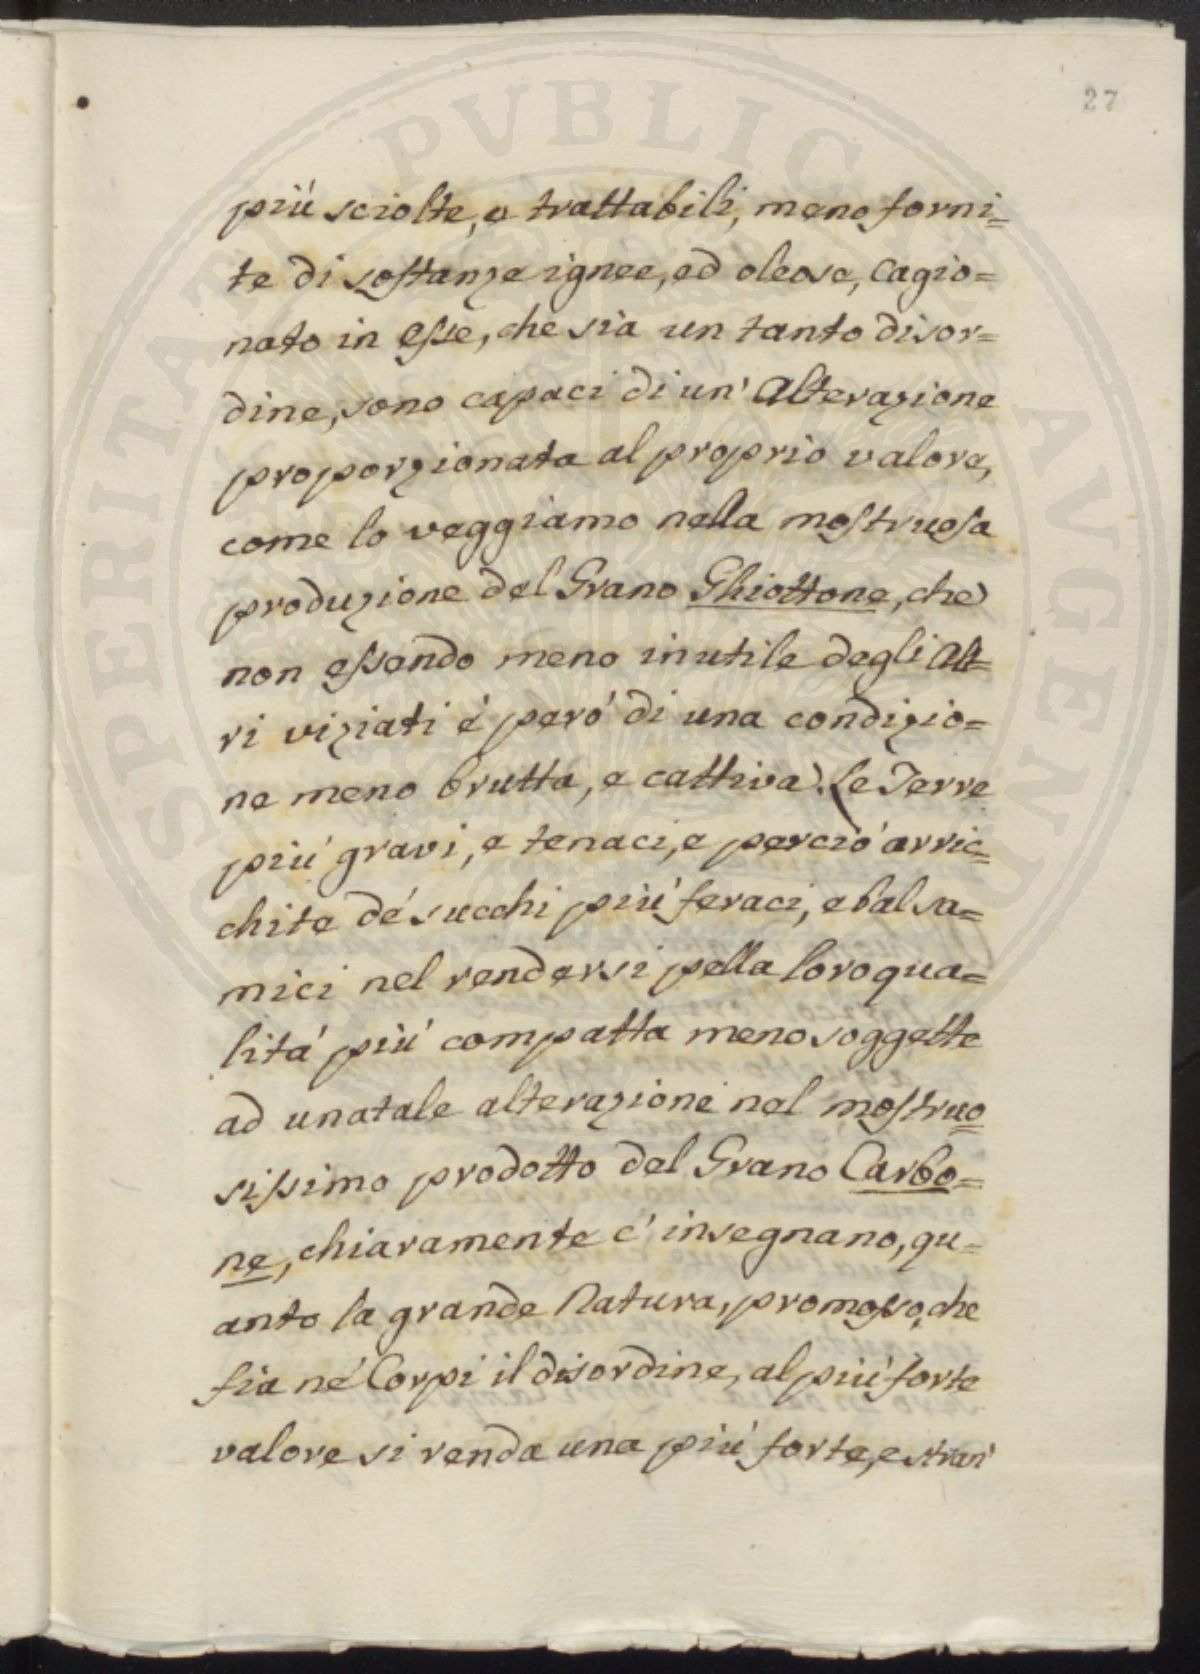 27
più sciolte, e trattabili, meno forni=
te di sostanze ignee, ed oleose, cagio=
nato in esse, che sia un tanto disor=
dine, sono capaci di un' alterazione
proporzionata al proprio valore,
come lo veggiamo nella mostruosa
produzione del Grano Ghiottone, che
non essendo meno inutile degli Alt=
ri viziati è però di una condizio=
ne meno brutta, e cattiva. Le Terre
più gravi, e tenaci, e perciò arric=
chite dé succhi più feraci, e balsa=
mici nel rendersi pella loro qua=
lità più compatta meno soggette
ad una tale alterazione nel mostruo=
sissimo prodotto del Grano Carbo=
ne, chiaramente c' insegnano, qu=
anto la grande Natura, promosso, che
sia né Corpi il disordine, al più forte
valore si renda una più forte, e
PVBLICAE AVGENDAE
PROSPERITATI